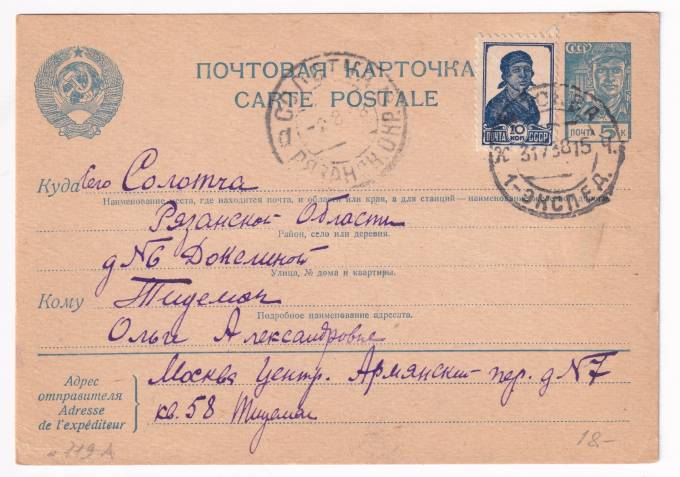 ПОЧТОВАЯ КАРТОЧКА
CARTE POSTALE
ПОЧТА 10 КОП СССР
СССР
ПОЧТА 5 К
МОСКВА
1-ЭКСПЕД.
СОЛОТЧА
Куда Село Солотча
Наименование места, где находится почта, и области или края, а для станций — наименование железной дороги
Рязанской Области
Район, село или деревня.
д №6
Улица, № дома и квартиры.
Кому Тидеман
Подробное наименование адресата.
Ольге Александровне
Адрес отправителя
Adresse de l'expéditeur
Москва Центр. Армянский пер. д №7
кв. 58 Тидеман
119-А
18-